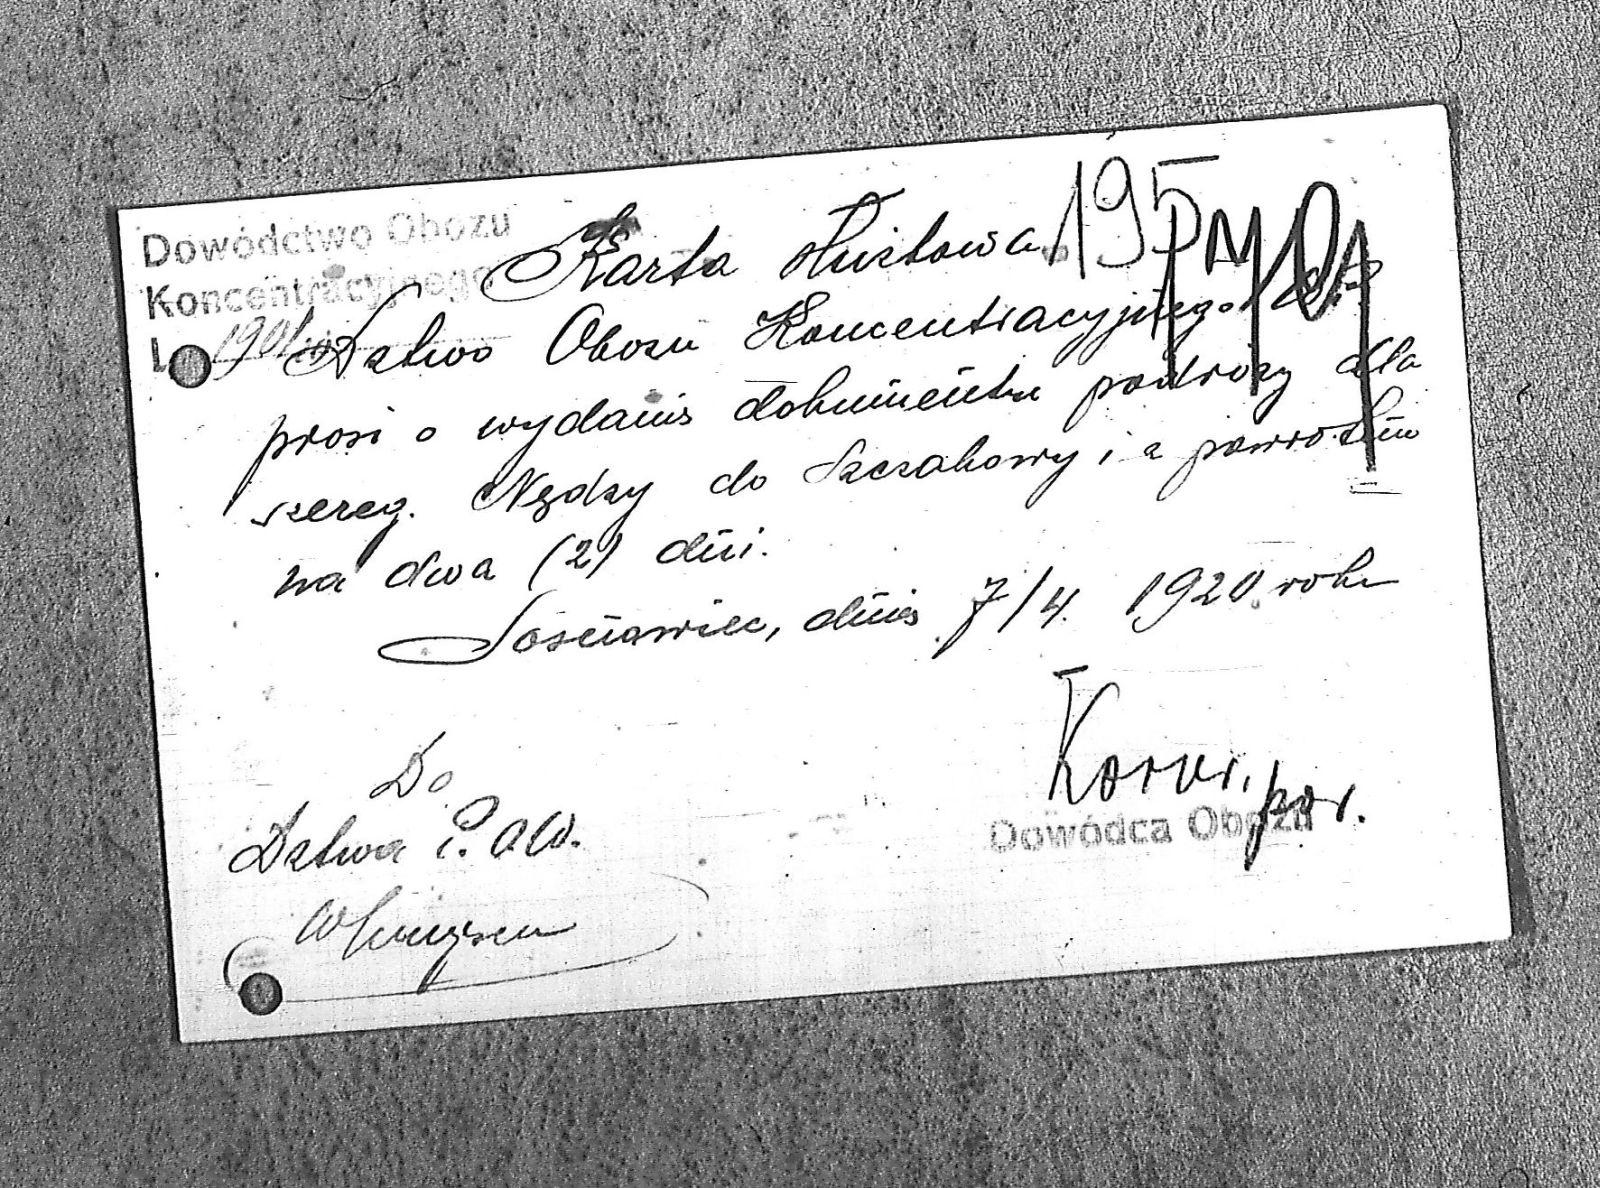 Dowództwo Obozu
Koncentracyjnego
L. 1901
Karta służbowa 195
Dztwo Obozu Koncentracyjnego
prosi o wydanie dokumentu podróży dla
szereg. Nędzy do Szczakowy i z powrotem
na dwa (2) dni.
Sosnowiec, dnia 7/4. 1920 roku
por.
Dowódca Obozu
Do
Dztwa